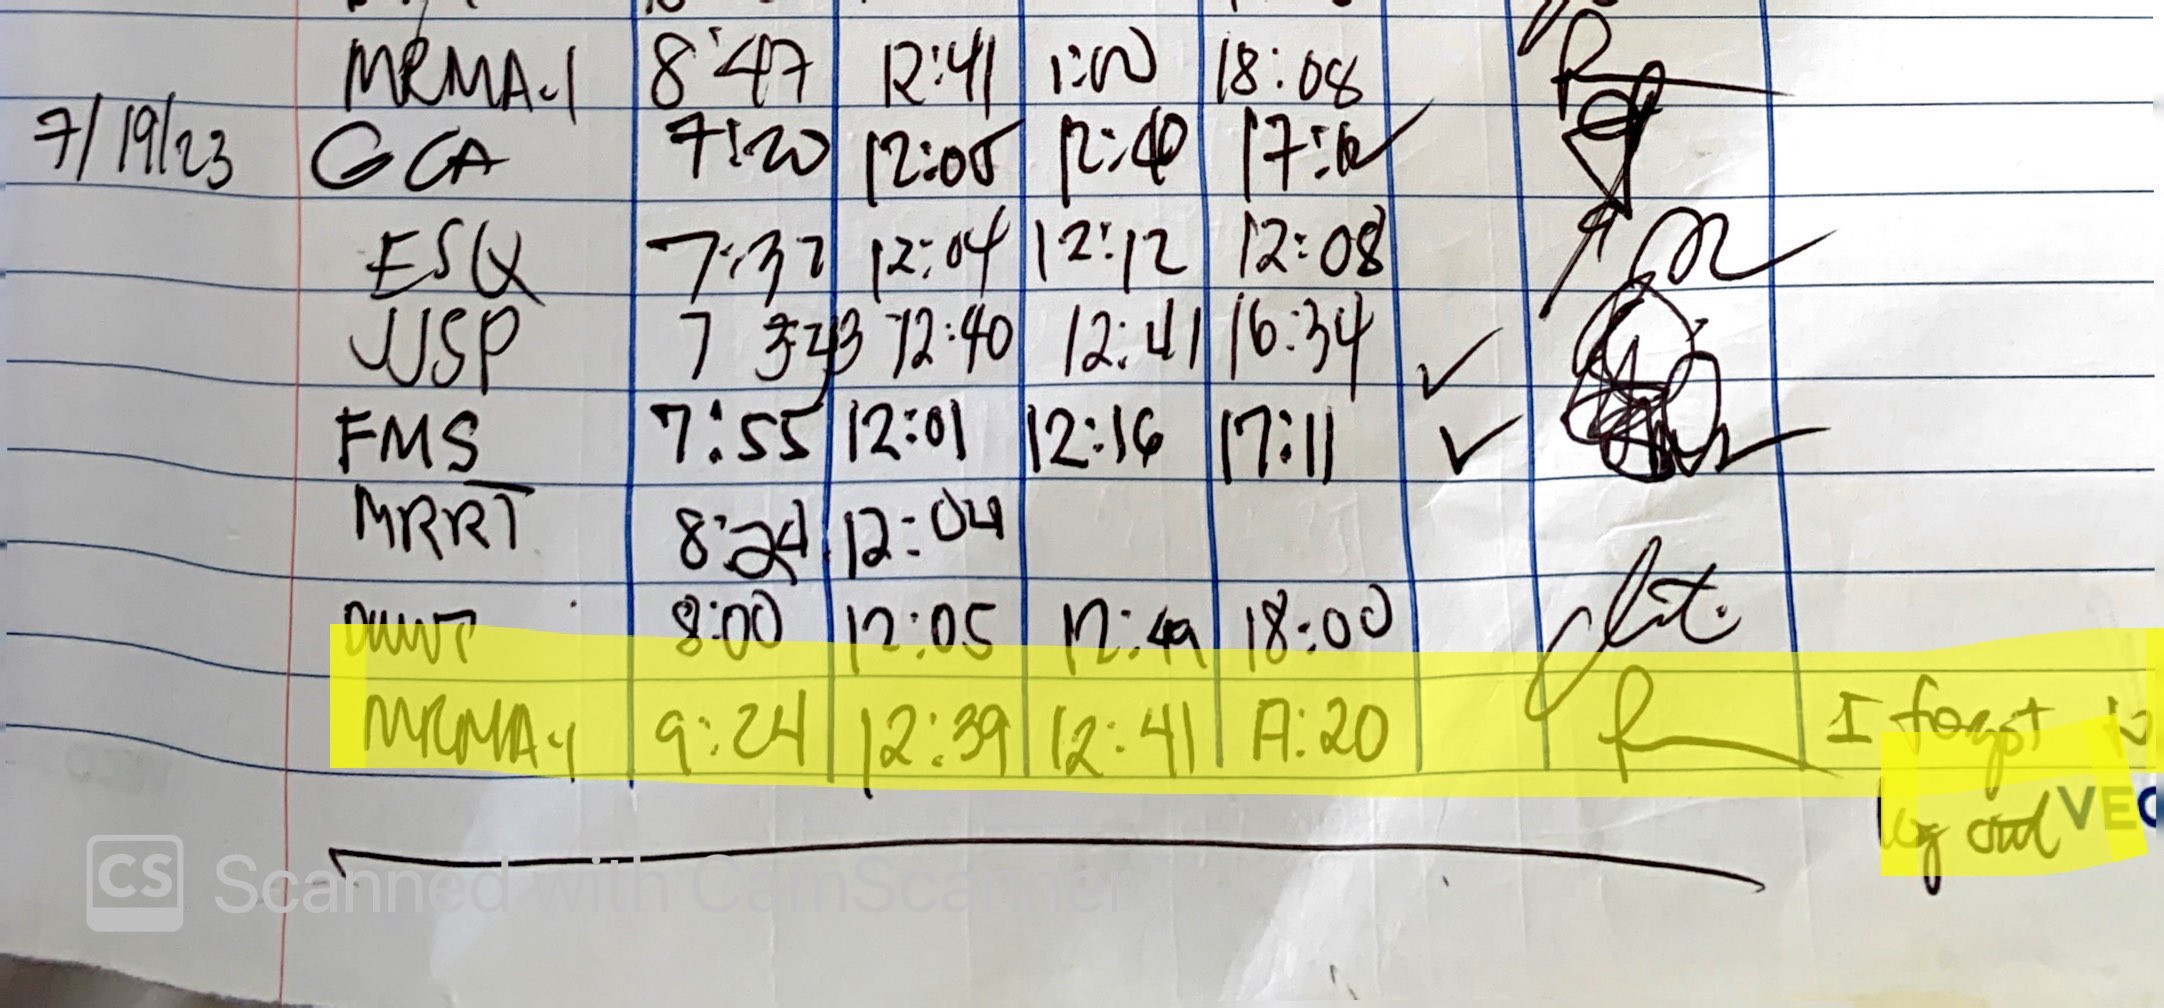 MRMA-1 8:47 12:41 1:00 18:08
7/19/23 GCA 7:20 12:05 12:40
ESQ 7:37 12:04 12:12 12:08
JJSP 7 12:40 12:41 16:34
FMS 7:55 12:01 12:16 17:11
MRRT 8:24 12:04
8:00 12:05 12:49 18:00
MRMA-1 9:24 12:39 12:41 17:20 I forgot to
log out VEC
CS Scanned with CamScanner